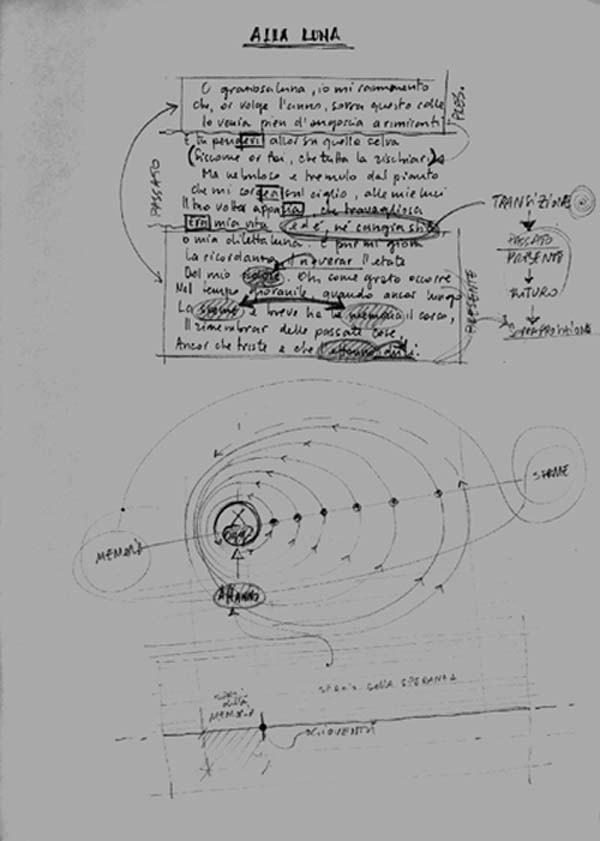 ALLA LUNA
O graziosa luna, io mi rammento
che, or volge l'anno, sovra questo colle
Io venia pien d'angoscia a rimirarti
E tu pendevi allor su quella selva
Siccome or fai, che tutta la rischiari
Ma nebuloso e tremulo dal pianto
che mi sorgea sul ciglio, alle mie luci
Il tuo volto apparia, che travagliosa
era mia vita: ed è, né cangia stile,
o mia diletta luna. E pur mi giova
La ricordanza, il noverar l'etate
Del mio dolore. Oh come grato occorre
Nel tempo giovanile, quando ancor lungo
La speme e breve ha la memoria il corso,
Il rimembrar delle passate cose,
Ancor che triste e che l'affanno duri.
PRES.
PASSATO
PRESENTE
TRANSIZIONE
PASSATO
PRESENTE
FUTURO
SPEME
MEMORIA
AFFANNO
SPAZIO DELLA SPERANZA
DELLA
MEMORIA
GIOVENTÙ